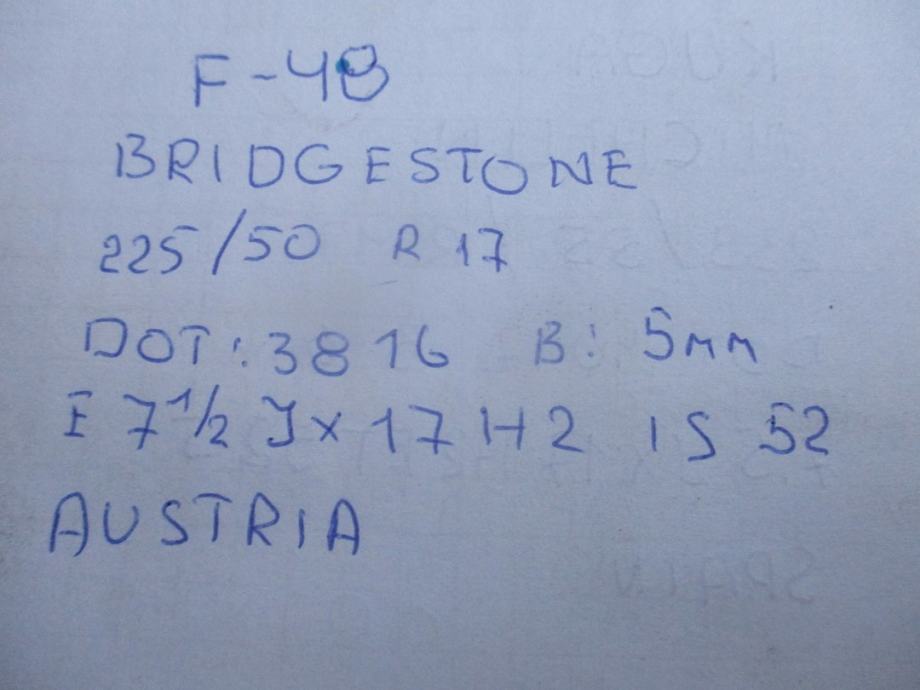 F-48
BRIDGESTONE
225/50 R 17
DOT: 3816 B: 5mm
E 7 1/2 J x 17 H2 IS 52
AUSTRIA